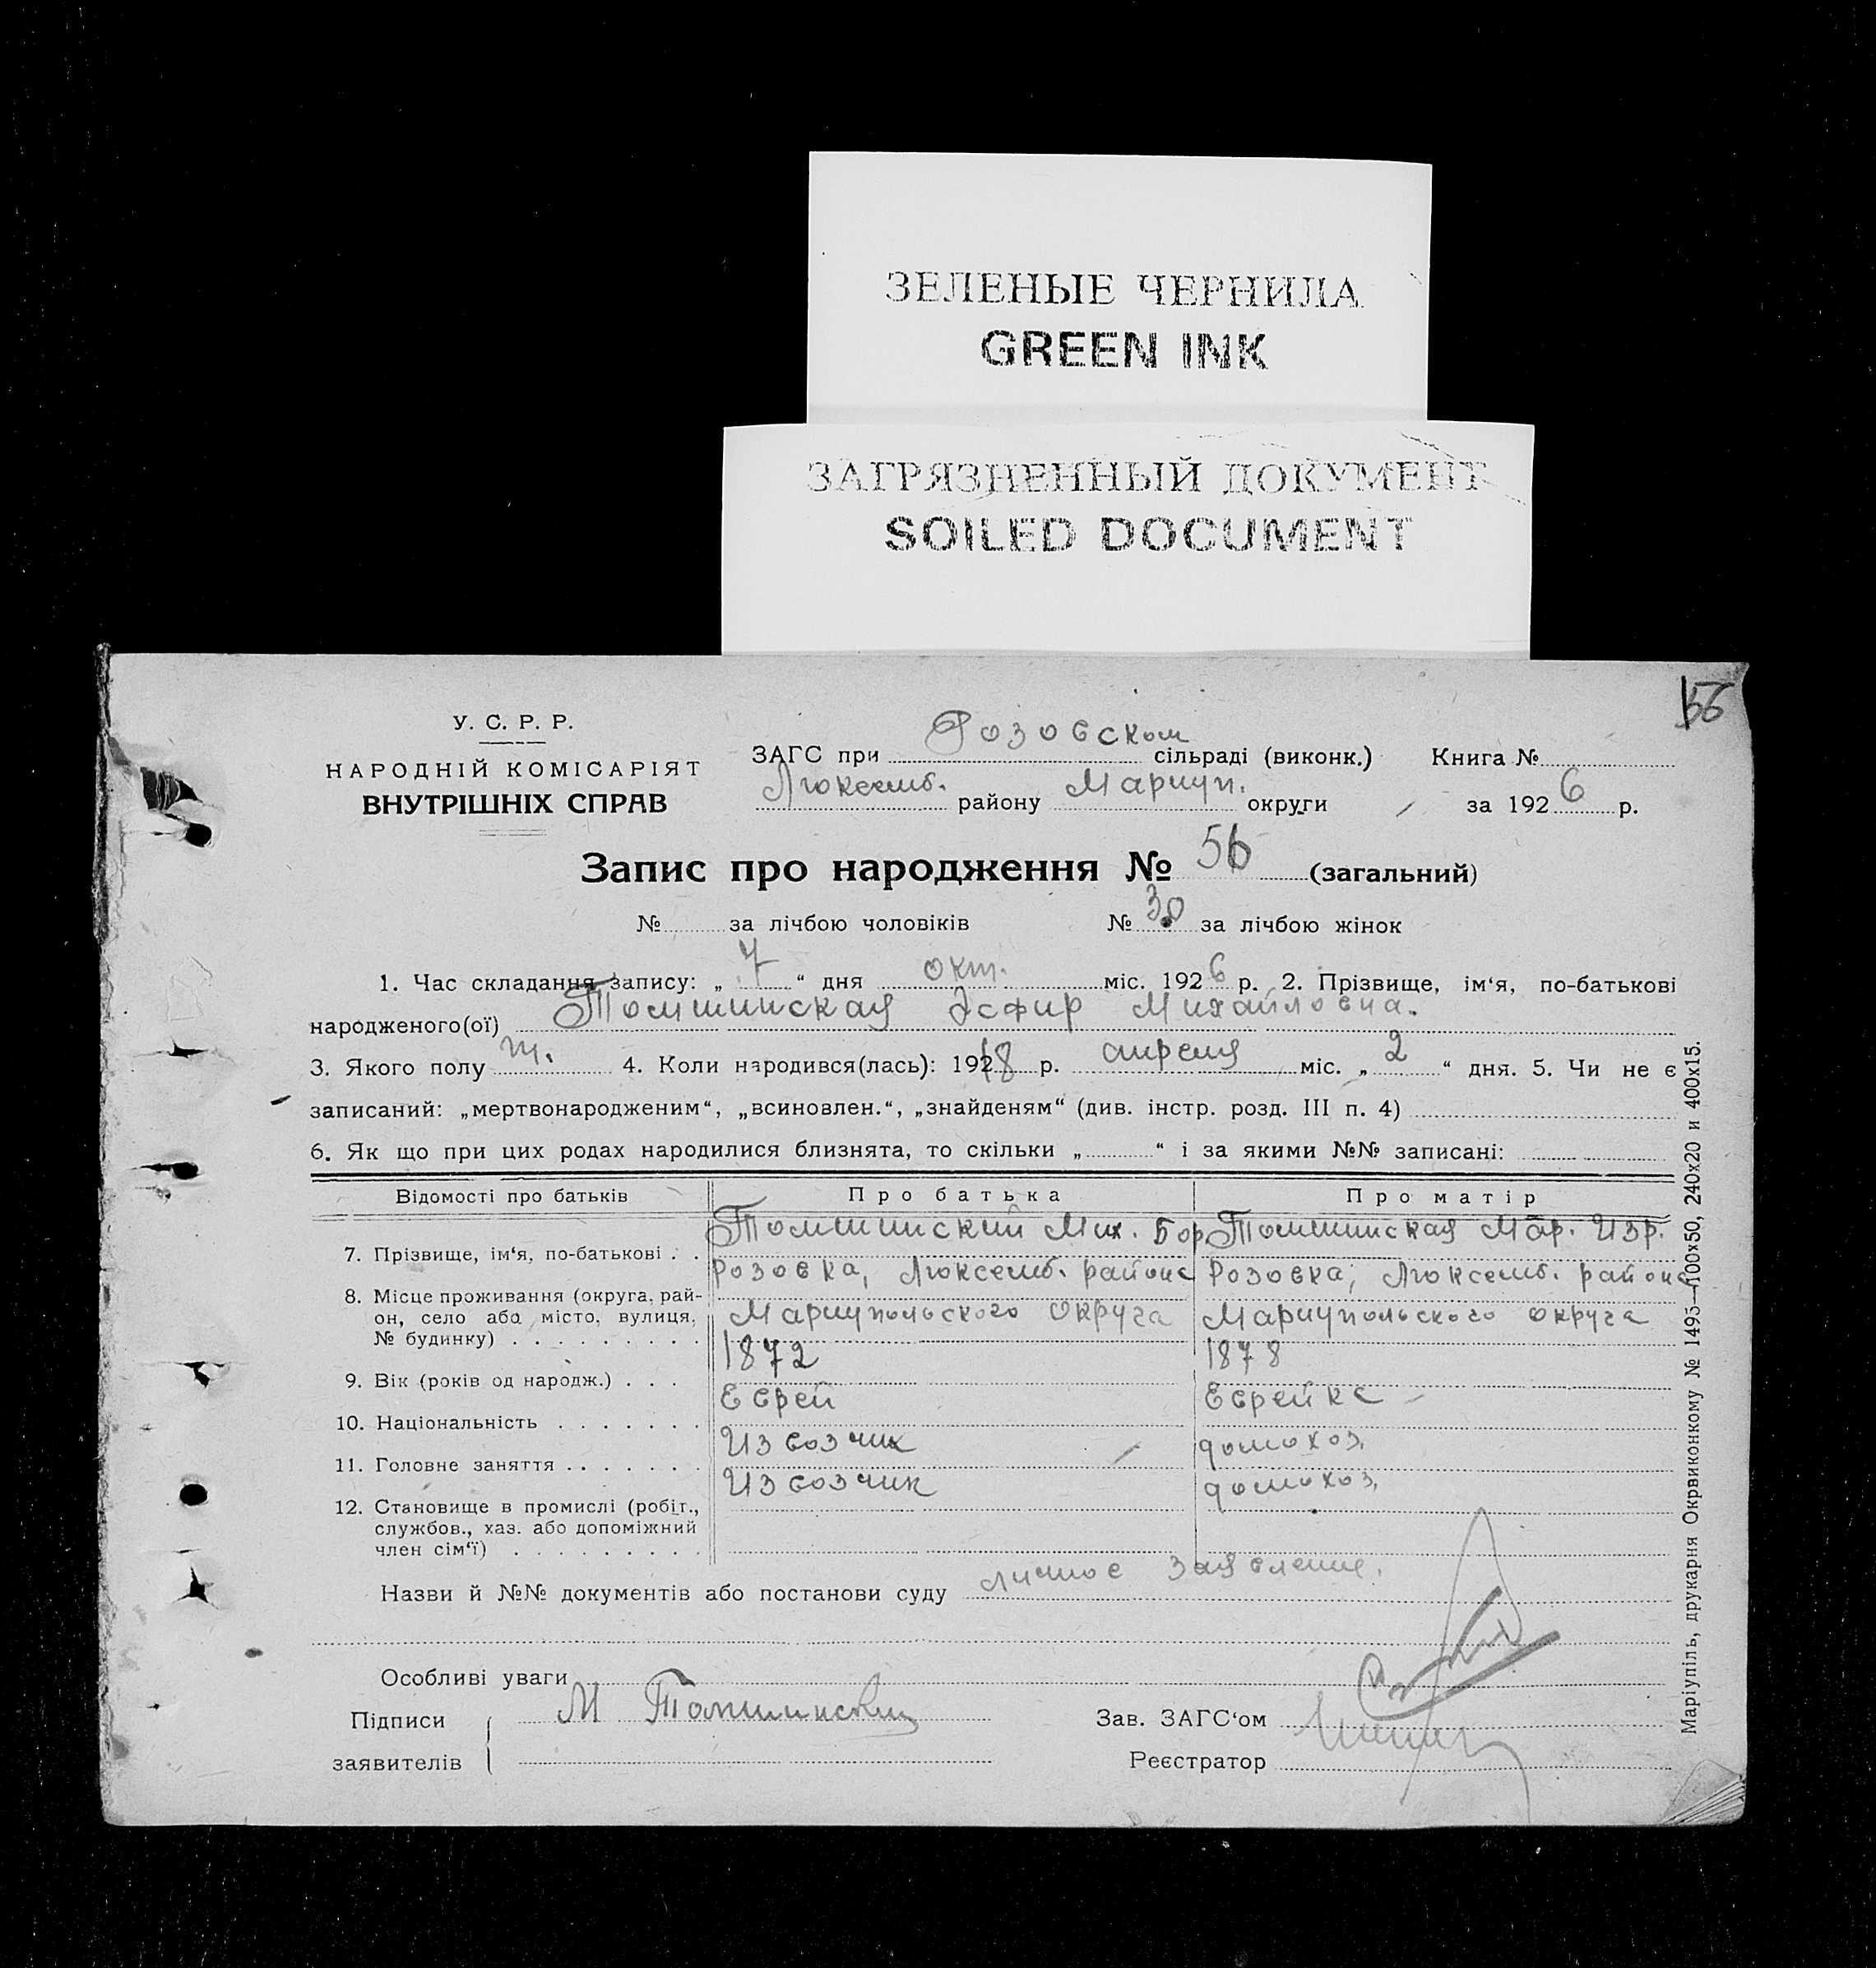 ЗЕЛЕНЫЕ ЧЕРНИЛА
GREEN INK
ЗАГРЯЗНЕННЫЙ ДОКУМЕНТ
SOILED DOCUMENT
56
У. С. Р. Р.
НАРОДНІЙ КОМІСАРІЯТ
ВНУТРІШНІХ СПРАВ
ЗАГС при Розовском сільраді (виконк.) Книга №
Люксемб. району Мариуп. округи за 1926 р.
Запис про народження № 56 (загальний)
№ за лічбою чоловіків № 30 за лічбою жінок
1. Час складання запису: „7“ дня окт. міс. 1926 р. 2. Прізвище, ім‘я, по-батькові
народженого(ої) Томшинская Эсфир Михайловна.
3. Якого полу ж. 4. Коли народився(лась): 1918 р. апреля міс. „2“ дня. 5. Чи не є
записаний: „мертвонародженим“, „всиновлен.“, „знайденям“ (див. інстр. розд. III п. 4)
6. Як що при цих родах народилися близнята, то скільки „ “ і за якими №№ записані:
Відомості про батьків Про батька Про матір
7. Прізвище, ім‘я, по-батькові . . Томшинский Мих. Бор. Томшинская Мар. Изр.
8. Місце проживання (округа, рай-
он, село або місто, вулиця,
№ будинку) Розовка, Люксемб. района Мариупольского округа Розовка, Люксемб. района Мариупольского округа
9. Вік (років од народж.) . . . 1872 1878
10. Національність Еврей Еврейка
11. Головне заняття Извозчик домохоз.
12. Становище в промислі (робіт.,
службов., хаз. або допоміжний
член сім‘ї) Извозчик домохоз.
Назви й №№ документів або постанови суду личное заявление.
Особливі уваги
Підписи
заявителів М Томшинский
Зав. ЗАГС‘ом
Реєстратор
Маріупіль, друкарня Окрвиконкому № 1495—100x50, 240x20 и 400x15.